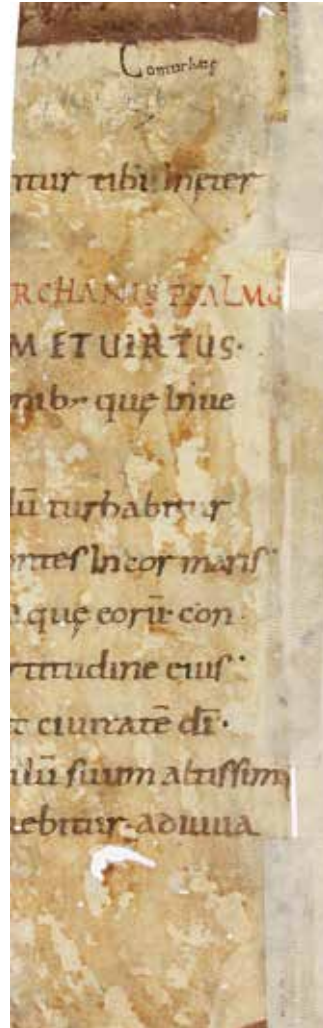 Conturbatę
ntur tibi In ęter
RCHANIS PSALM
M ETUIRTUS·
nib; quę Inue
lū turbabitur
ontes In cor maris
& quę eorū con
rtitudine eius
t ciuitatē dī·
ulū suum altissim
uebitur· adiuua